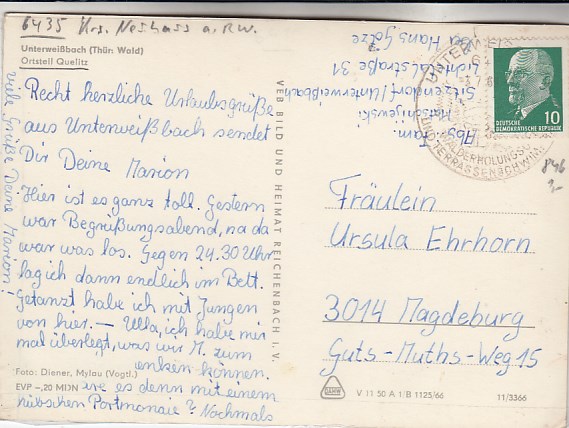 6435 Krs. Neuhaus a. RW.
Unterweißbach (Thür. Wald)
Ortsteil Quelitz
Recht herzliche Urlaubsgrüße
aus Unterweißbach sendet
Dir Deine Marion
Hier ist es ganz toll. Gestern
war Begrüßungsabend, na da
war was los. Gegen 24.30 Uhr
lag ich dann endlich im Bett.
Getanzt habe ich mit Jungen
von hier. — Ulla, ich habe mir
mal überlegt, was wir M. zum
enken können.
Foto: Diener, Mylau (Vogtl.)
EVP –,20 MDN
wäre es denn mit einem
hübschen Portmonaie? Nochmals
viele Grüße Deine Marion!
VEB BILD UND HEIMAT REICHENBACH I. V.
Abs.
Fam.
Sitzendorf/Unterweißbach
Lichtetalstraße 31
bei Hans Götze
UNTERWEIS
WALDERHOLUNGSO
TERRASSENSCHWIMM
10
DEUTSCHE
DEMOKRATISCHE REPUBLIK
846
Fräulein
Ursula Ehrhorn
3014 Magdeburg
Guts-Muths-Weg 15
V 11 50 A 1/B 1125/66
11/3366